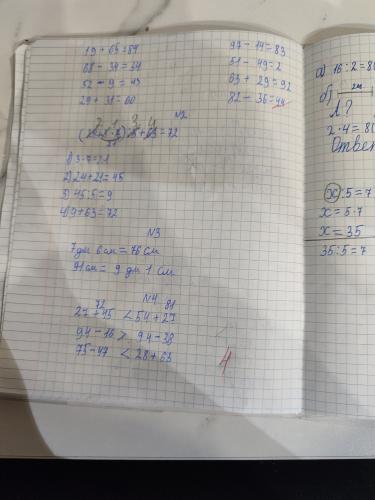 19 + 65 = 84
68 - 34 = 34
52 - 9 = 43
29 + 31 = 60
97 - 14 = 83
51 - 49 = 2
63 + 29 = 92
82 - 36 = 44
N2
2 1 3 4
+ 63 = 72
21
1) 3·7=21
2) 24+21=45
3) 45:5=9
4) 9+63=72
N3
7 дм 6 см = 76 см
91 см = 9 дм 1 см
N4
72 81
27+45 < 54+27
94-16 > 94-38
75-47 < 28+63
4
а) 16:2=8
б) 2м
Л?
2·4=8
Ответ
x:5=7
x=5·7
x=35
35:5=7